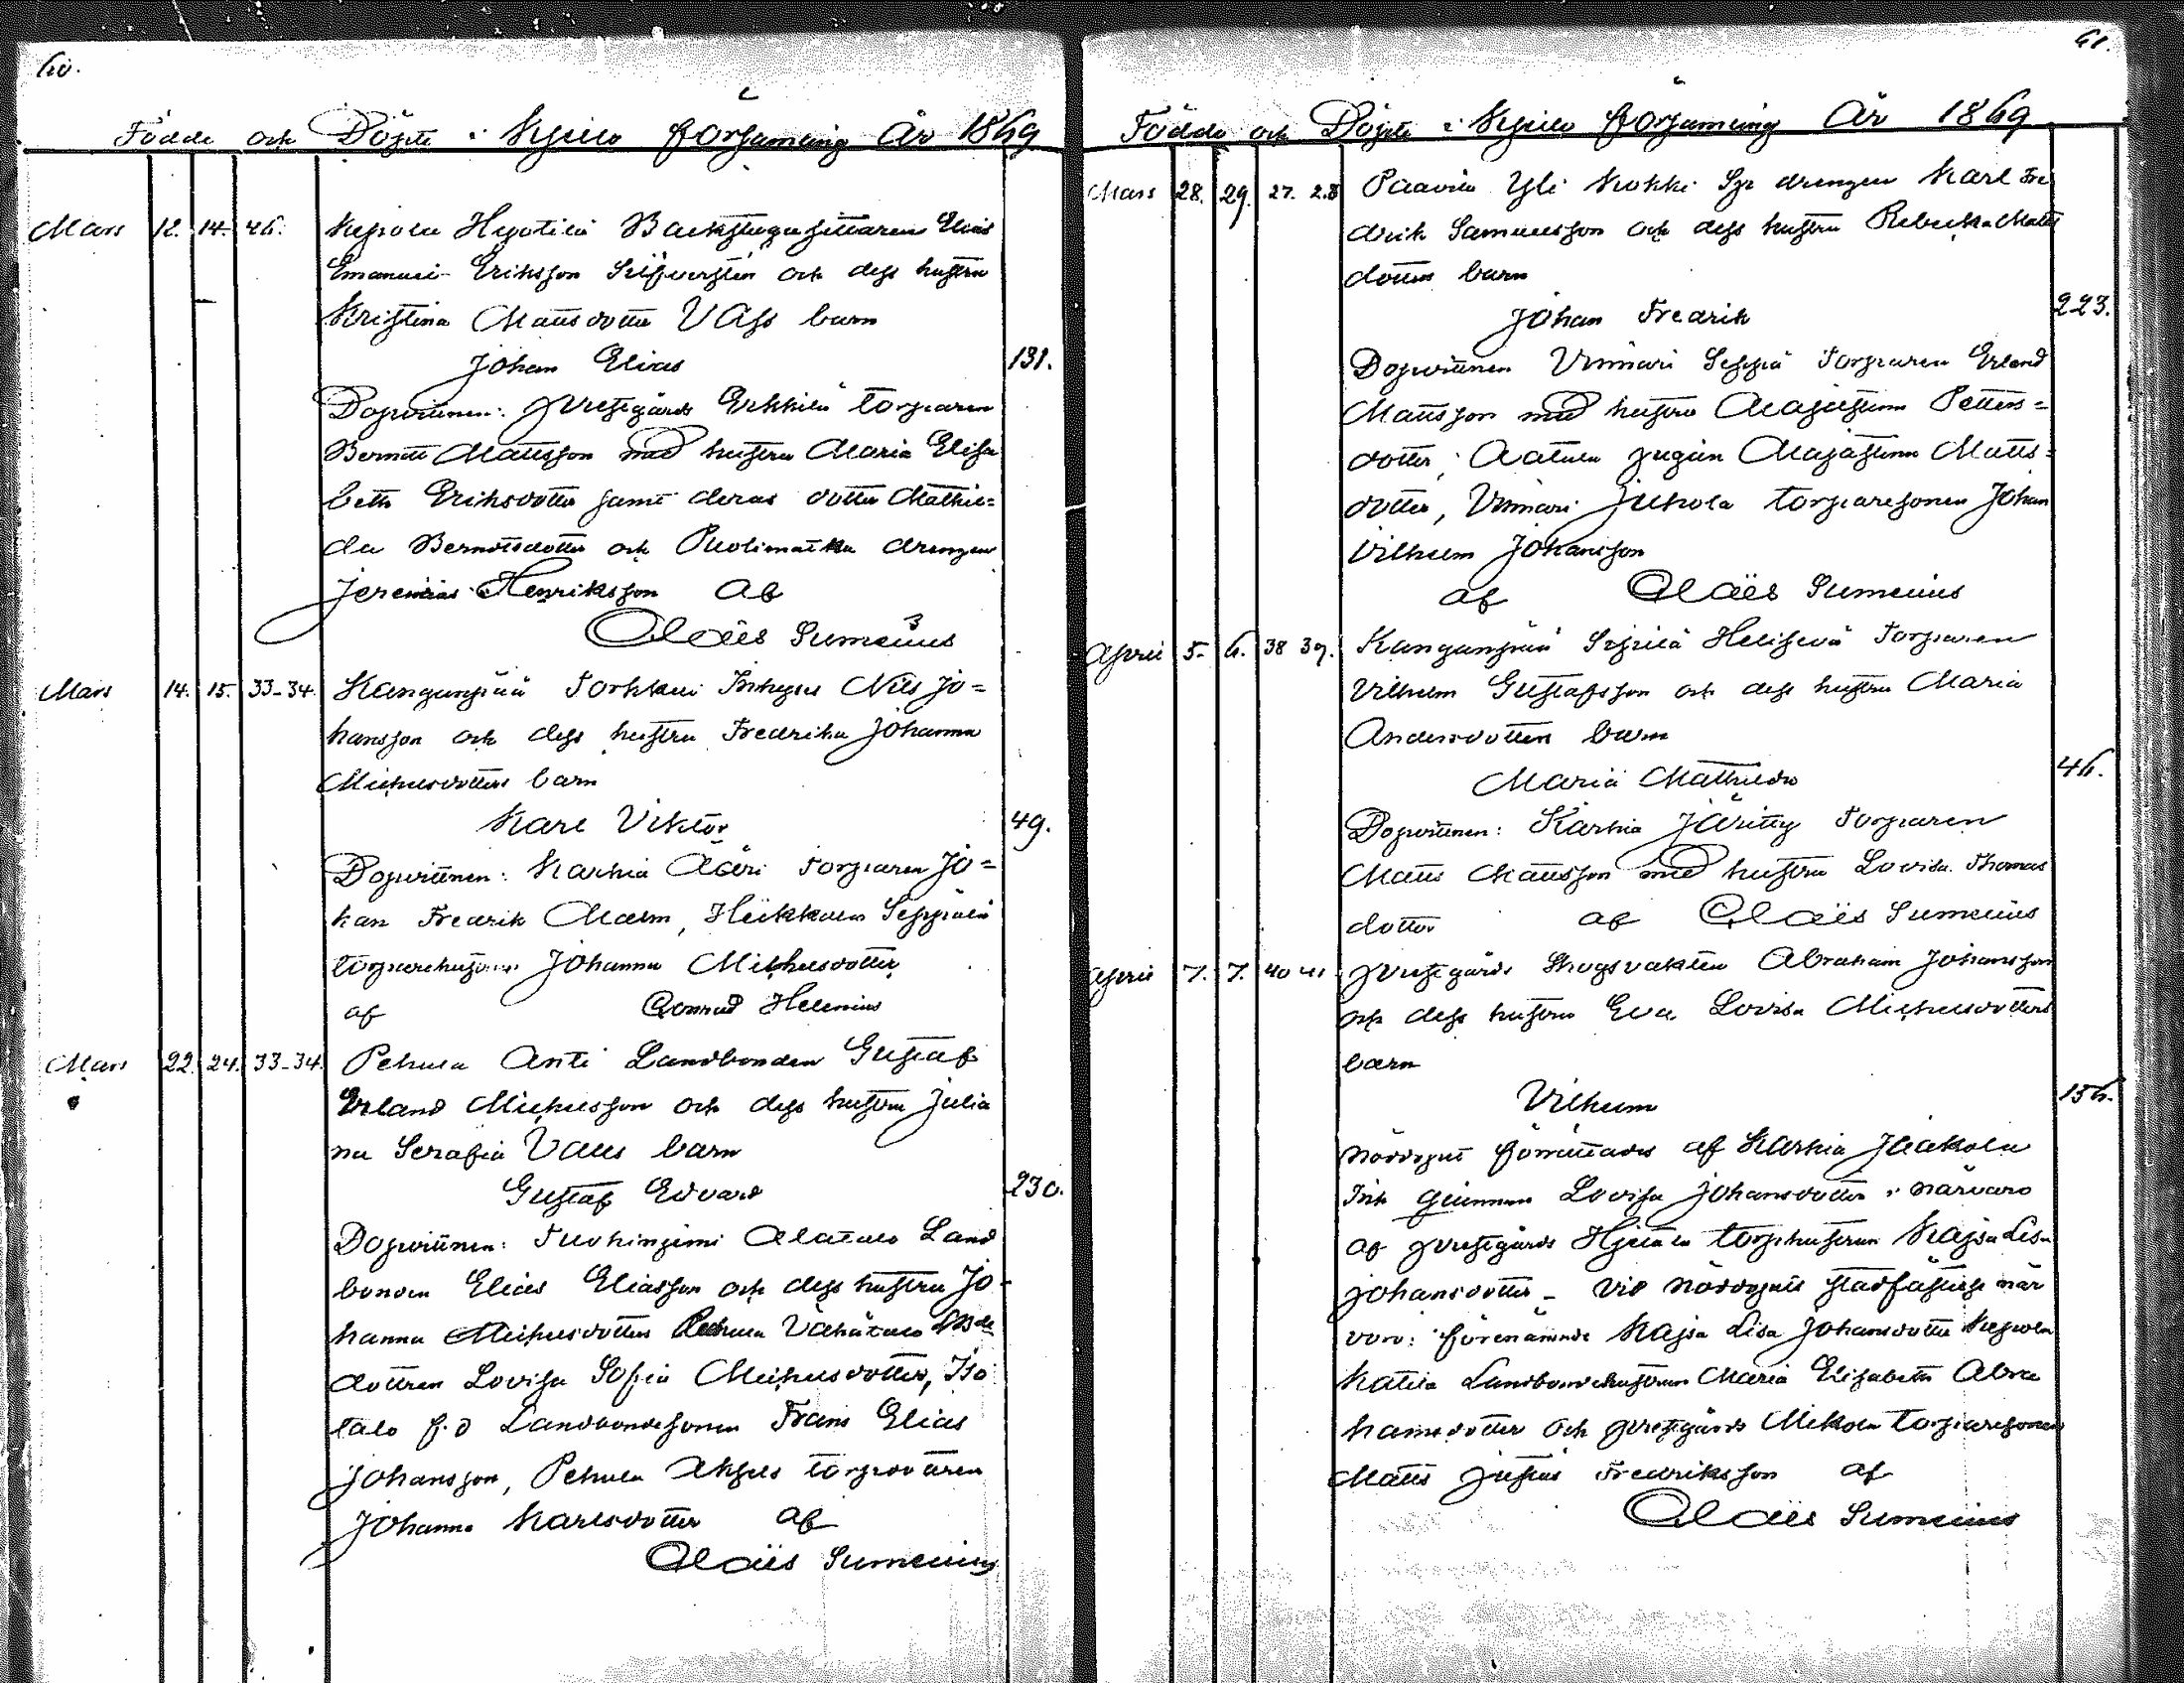 60.
Födde och Döpte i Kjulo församling År 1869
Mars 12. 14. 46. Kepola Hyötilä Backstugusittaren Elias
Emanuel Eriksson Silfversten och dess hustru
Kristina Mattsdotter Vass barn
Johan Elias 131.
Dopvittnen: Prestgårds Erkkilä torparen
Berndt Mattsson med hustru Maria Elisa
beth Eriksdotter samt deras dotter Mathil=
da Berndtsdotter och Puolimatka drengen
Jeremias Henriksson af
Claës Sumelius
Mars 14. 15. 33-34. Kanganpää Torkkeli Inhyses Nils Jo=
hansson och dess hustru Fredrika Johanna
Michelsdotters barn
Karl Viktor 49.
Dopvittnen: Karhia Ääri Torparen Jo=
han Fredrik Malm, Heikkola Seppälä
torparehustrun Johanna Michelsdotter
af Conrad Helenius
Mars 22. 24. 33-34. Pehula Anti Landbonden Gustaf
Erland Michelsson och dess hustru Julia
na Serafia Vallis barn
Gustaf Edvard 230.
Dopvittnen: Tuohiniemi Alatalo Land
bonden Elias Eliasson och dess hustru Jo-
hanna Michelsdotter Pehula Vähätalo
dottren Lovisa Sofia Michelsdotter, Iso
talo f.d Landbondesonen Frans Elias
Johansson, Pehula torpdottren
Johanna Karlsdotter af
Claës Sumelius
61.
Födde och Döpte i Kjulo församling År 1869
Mars 28. 29. 27. 28 Paavila Yli Kokki Spr drengen Karl Fre
drik Samuelsson och dess hustru Rebecka Matts
dotters barn
Johan Fredrik 223.
Dopvittnen Vinnari Seppä Torparen Erland
Mattsson med hustru Majastina Petters=
dotter, Aatula pigan Majastina Matts=
dotter, Vinnari Jukola torparesonen Johan
Vilhelm Johansson
af Claës Sumelius
April 5. 6. 38 39. Kanganpää Seppälä Torparen
Vilhelm Gustafsson och dess hustru Maria
Andersdotters barn
Maria Mathilda 46.
Dopvittnen: Karhia Torparen
Matts Mattsson med hustru Lovisa Thomas
dotter af Claës Sumelius
April 7. 7. 40 41 Prestgårds Skogsvakten Abraham Johansson
och dess hustru Eva Lovisa Michelsdotters
barn
Vilhelm 156.
Nöddopet förrättades af Karhia Jaakola
Inh qvinnan Lovisa Johansdotter i närvaro
af prestgårds torphustrun Kajsa Lisa
Johansdotter - Vid Nöddopets stadfästelse när
voro: förenämnde Kajsa Lisa Johansdotter Kepola
Katila Landbondehustrun Maria Elisabeth Abra
hamsdotter och prestgårds Mikola torparesonen
Matts Justus Fredriksson af
Claës Sumelius